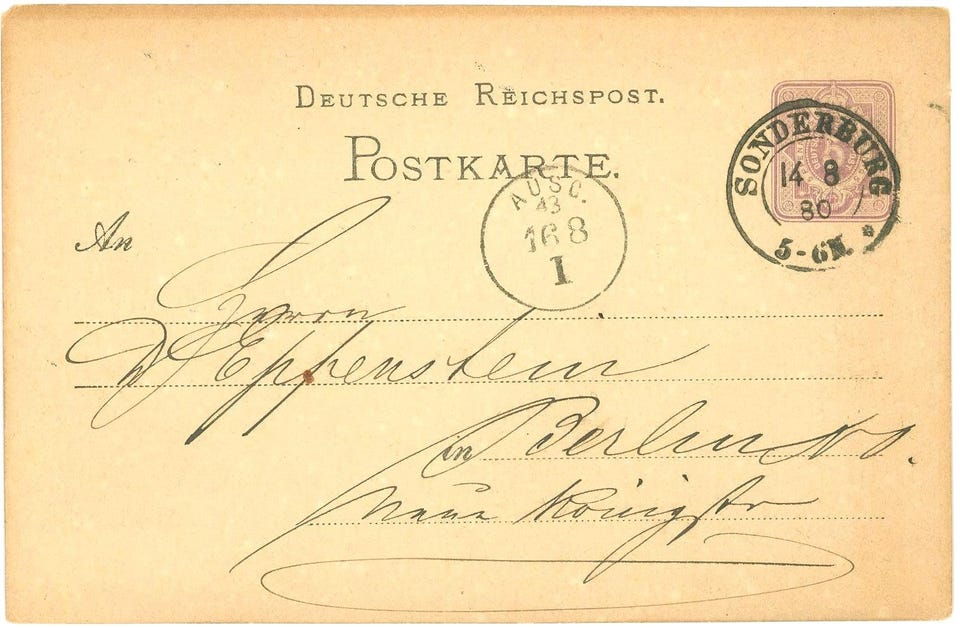 DEUTSCHE REICHSPOST.
POSTKARTE.
SONDERBURG
14 8
80
5-6N.
AUSG.
43
16 8
I
An
Herrn
Eppenstein
in Berlin NO.
Neue Königstr